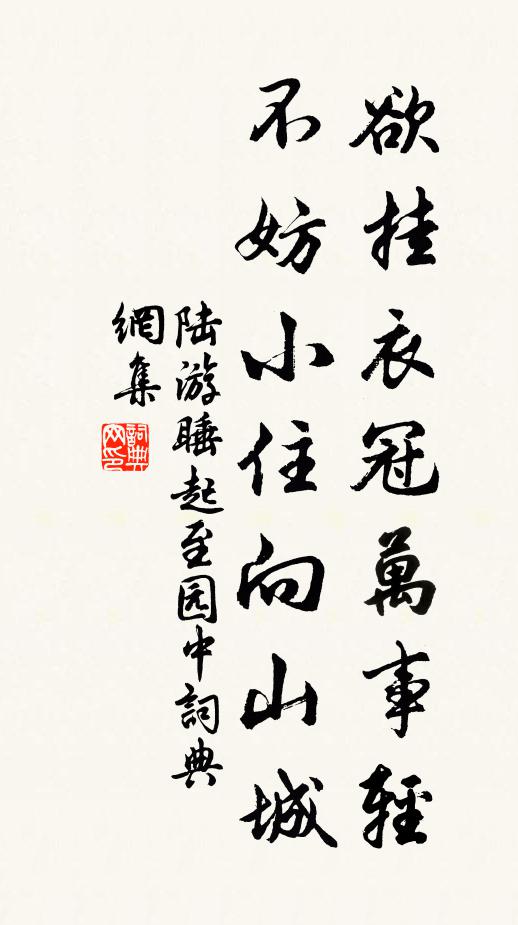 欲挂衣冠萬事輕
不妨小住向山城
陆游睡起至园中詞典
網集
詞典
网印